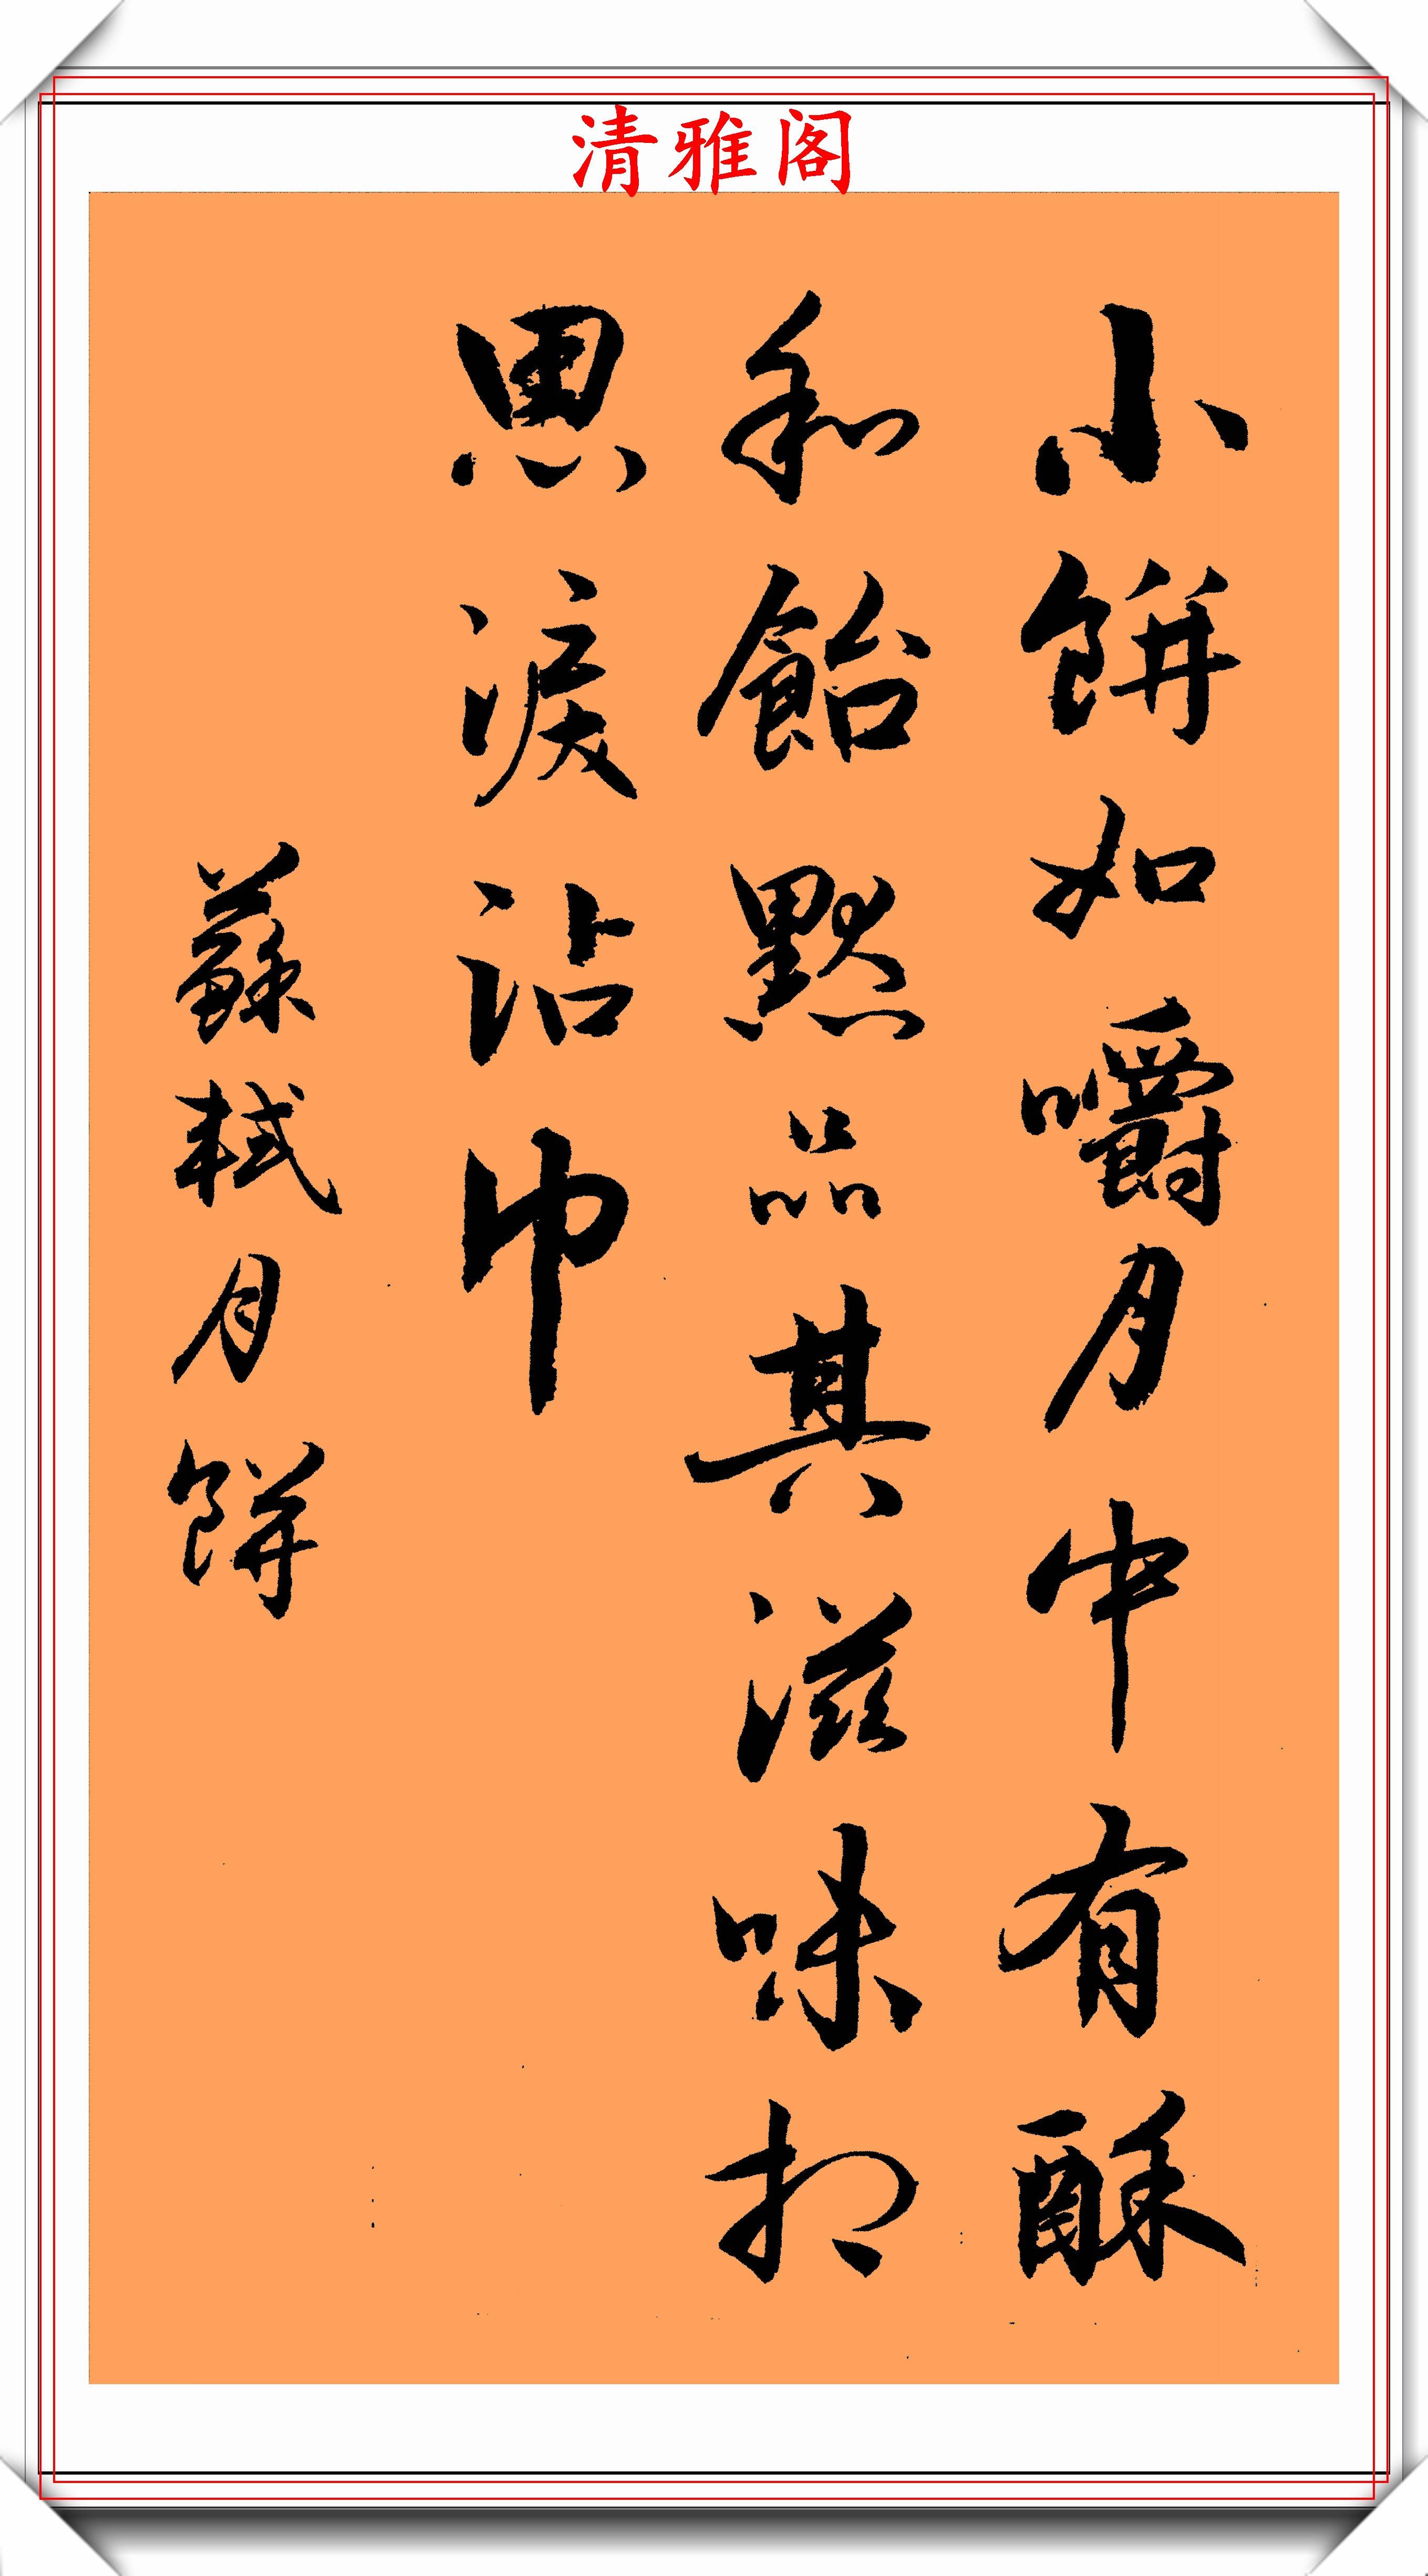 清雅阁
小餅如嚼月中有酥
和飴黙品其滋味相
思淚沾巾
蘇軾月餅